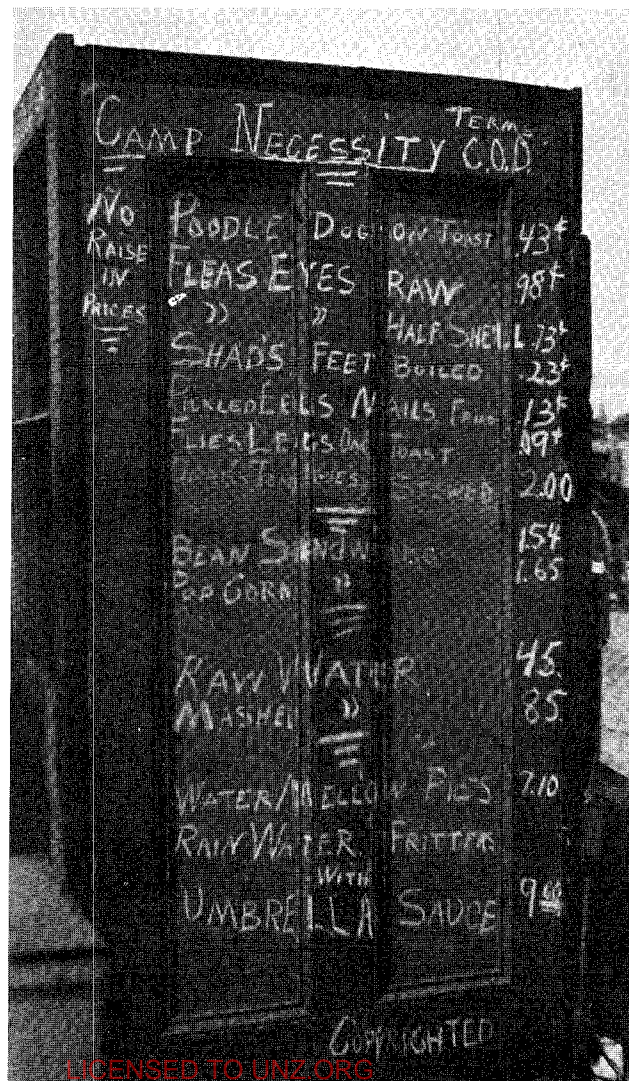 TERMS
CAMP NECESSITY C.O.D.
NO RAISE IN PRICES
POODLE DOG ON TOAST .43¢
FLEAS EYES RAW .98¢
" " HALF SHELL .73¢
SHAD'S FEET BOILED .23¢
PICKLED EELS NAILS FRIED .13¢
FLIES LEGS ON TOAST .09¢
STEWED 2.00
BEAN 1.54
POP CORN " 1.65
RAW WATER 45.
MASHED " 85.
WATER/MELLOW PIES 7.10
RAIN WATER FRITTERS
WITH
UMBRELLA SAUCE 9.00
COPYRIGHTED
LICENSED TO UNZ.ORG